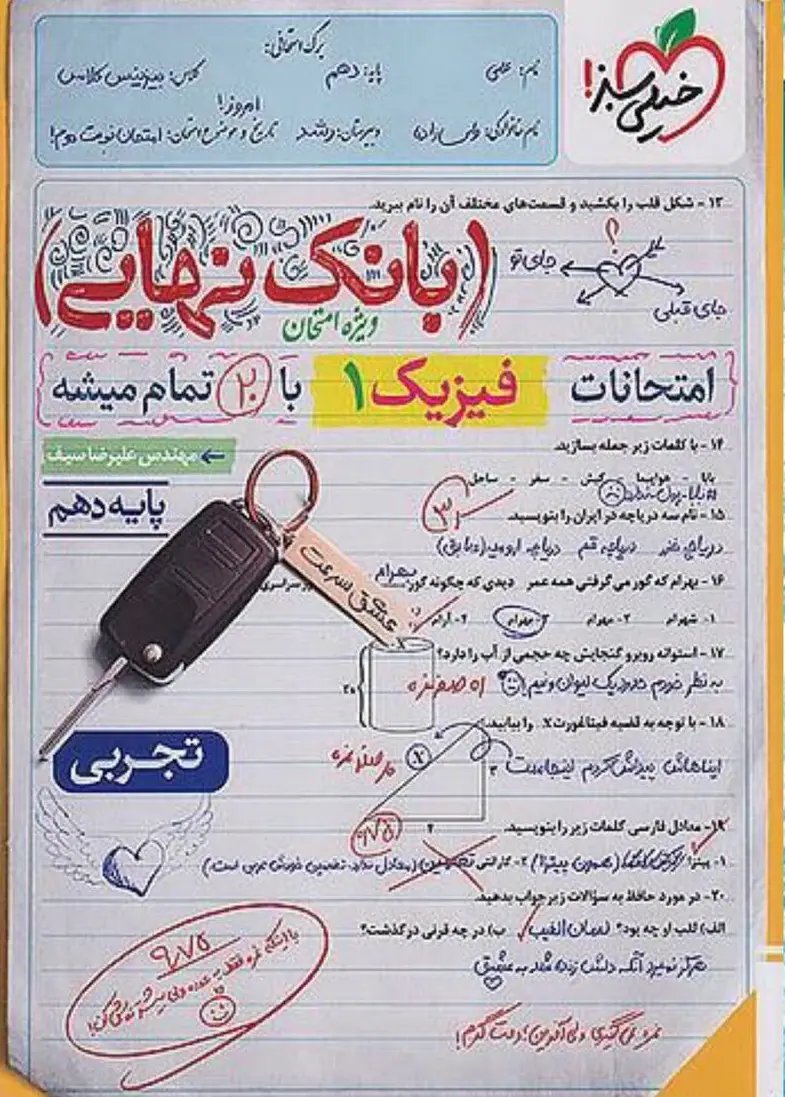 خیلی سبز!
برگ امتحانی:
نام: علی
پایه: دهم
کلاس: بیزینس کلاس
امروز!
نام خانوادگی:
دبیرستان: رشد
تاریخ و موضوع امتحان: امتحان نوبت دوم!
۱۳ - شکل قلب را بکشید و قسمت‌های مختلف آن را نام ببرید.
جای تو
جای قبلی
(بانک نهایی)
ویژه امتحان
امتحانات فیزیک ۱ با ۲۰ تمام میشه
۱۴ - با کلمات زیر جمله بسازید.
مهندس علیرضا سیف
بابا - هواپیما - کیش - سفر - ساحل
پایه دهم
۱۵ - نام سه دریاچه در ایران را بنویسید.
دریاچه خزر دریاچه قم دریاچه ارومیه (سابق)
عشق سرعت
۱۶ - بهرام که گور می‌گرفتی همه عمر دیدی که چگونه گور بهرام
۱- شهرام ۲- مهرام ۳- بهرام ۴- آرام
۱۷ - استوانه روبرو گنجایش چه حجمی از آب را دارد؟
به نظر خودم حدود یک لیوان و نیم!
۲۰
X
۱۸ - با توجه به قضیه فیثاغورث X را بیابید.
ایناهاش پیداش کردم اینجاست
X
۳
۴
تجربی
۱۹- معادل فارسی کلمات زیر را بنویسید.
۱- پیتزا: (همون پیتزا) ۲- گارانتی: (معادل ندارد، تضمین خودش عربی است)
۲۰- در مورد حافظ به سؤالات زیر جواب بدهید.
الف) لقب او چه بود؟ لسان الغیب ب) در چه قرنی درگذشت؟
هرگز نمیرد آنکه دلش زنده شد به عشق
۹/۷۵
نمره نمی‌گیری ولی آفرین! دمت گرم!